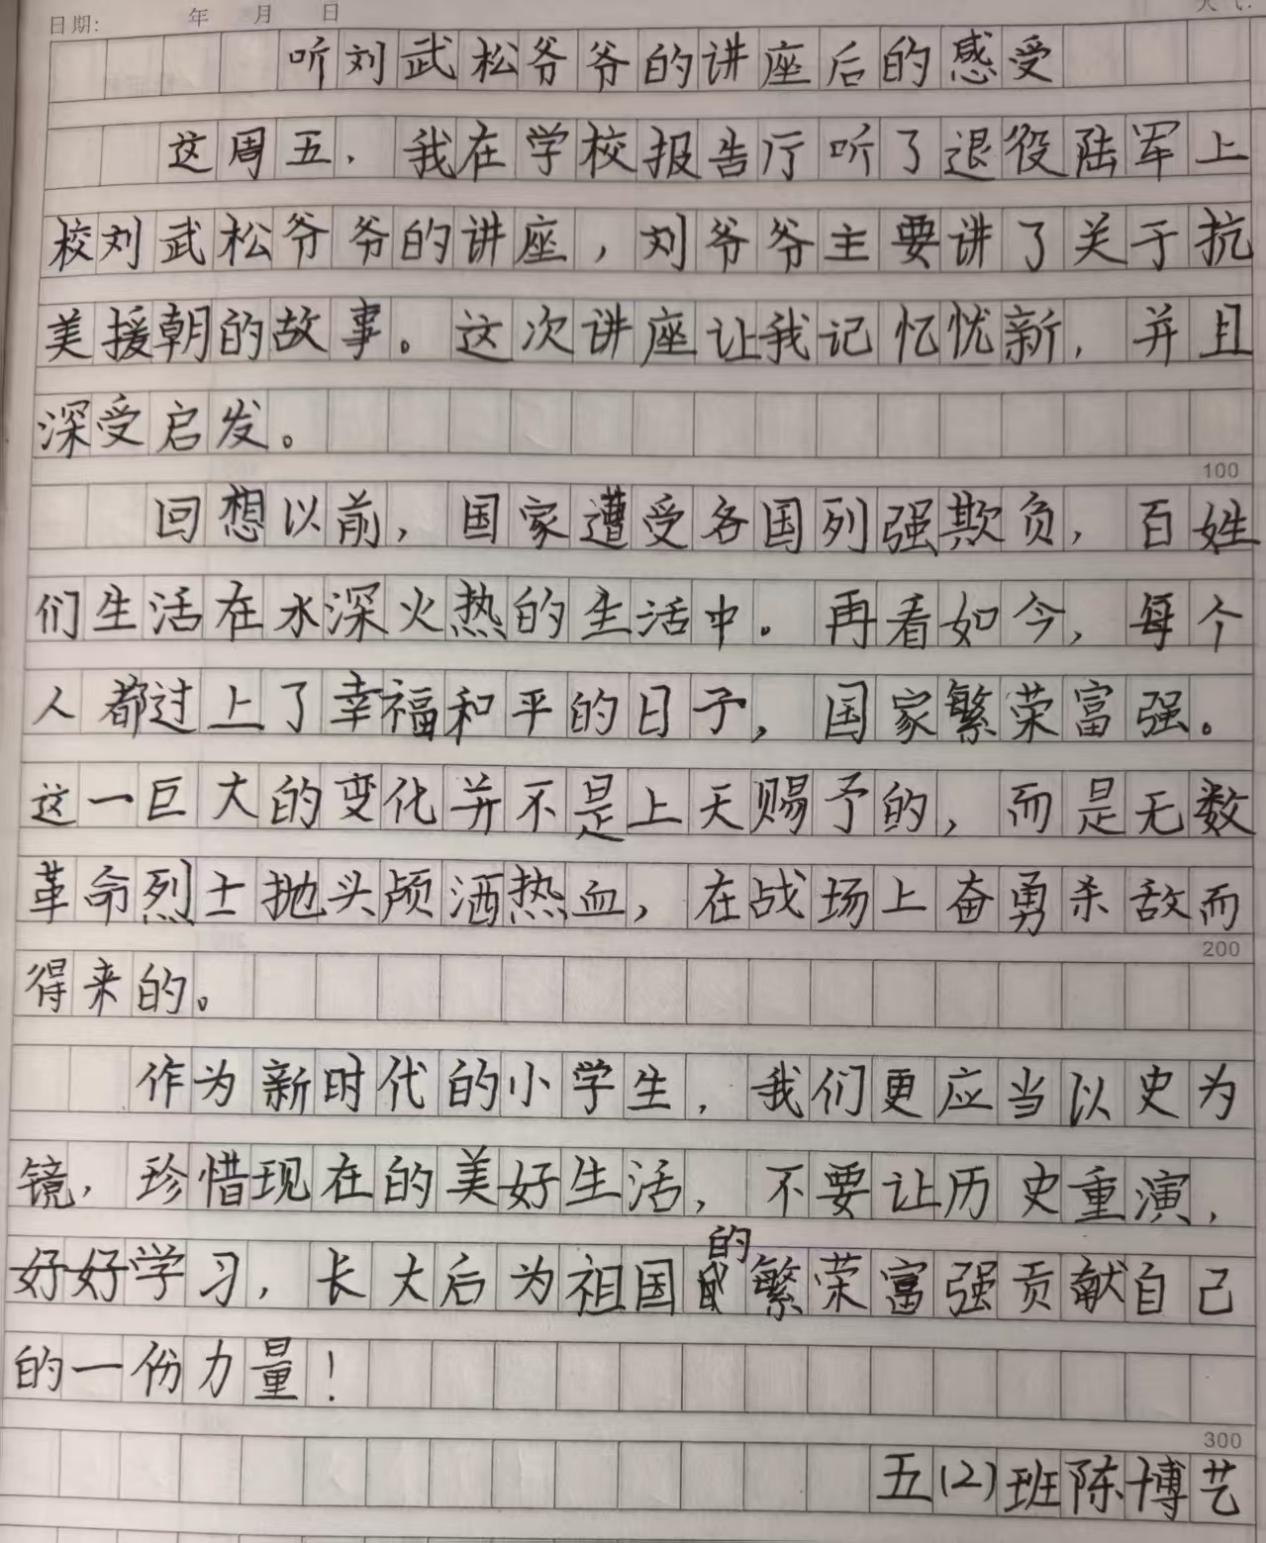 日期: 年 月 日
听刘武松爷爷的讲座后的感受
这周五，我在学校报告厅听了退役陆军上
校刘武松爷爷的讲座，刘爷爷主要讲了关于抗
美援朝的故事。这次讲座让我记忆忧新，并且
深受启发。
100
回想以前，国家遭受各国列强欺负，百姓
们生活在水深火热的生活中。再看如今，每个
人都过上了幸福和平的日子，国家繁荣富强。
这一巨大的变化并不是上天赐予的，而是无数
革命烈士抛头颅洒热血，在战场上奋勇杀敌而
200
得来的。
作为新时代的小学生，我们更应当以史为
镜，珍惜现在的美好生活，不要让历史重演，
好好学习，长大后为祖国的繁荣富强贡献自己
的一份力量！
300
五(2)班陈博艺